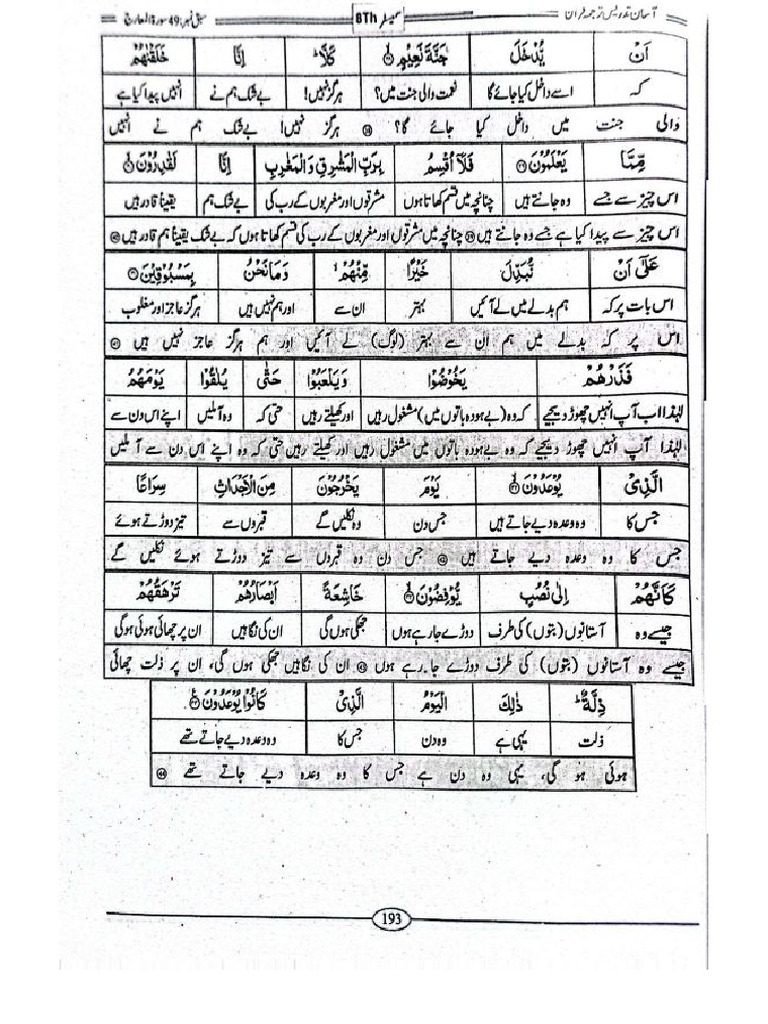 آسان تدریس ترجمہ قرآن 8Th سبق نمبر: 49 سورۃ المعارج
اَنْ يُّدْخَلَ جَنَّةَ نَعِيْمٍ ۳۸ كَلَّا ؕ اِنَّا خَلَقْنٰهُمْ
کہ اسے داخل کیا جائے گا نعمت والی جنت میں؟ ہرگز نہیں! بے شک ہم نے انہیں پیدا کیا ہے
والی جنت میں داخل کیا جائے گا؟ ۳۸ ہرگز نہیں! بے شک ہم نے انہیں
مِّمَّا يَعْلَمُوْنَ ۳۹ فَلَاۤ اُقْسِمُ بِرَبِّ الْمَشٰرِقِ وَالْمَغٰرِبِ اِنَّا لَقٰدِرُوْنَ ۴۰
اس چیز سے جسے وہ جانتے ہیں چنانچہ میں قسم کھاتا ہوں مشرقوں اور مغربوں کے رب کی بے شک ہم یقیناً قادر ہیں
اس چیز سے پیدا کیا ہے جسے وہ جانتے ہیں ۳۹ چنانچہ میں مشرقوں اور مغربوں کے رب کی قسم کھاتا ہوں کہ بے شک یقیناً ہم قادر ہیں ۴۰
عَلٰۤى اَنْ نُّبَدِّلَ خَيْرًا مِّنْهُمْ ۙ وَمَا نَحْنُ بِمَسْبُوْقِيْنَ ۴۱
اس بات پر کہ ہم بدلے میں لے آئیں بہتر ان سے اور ہم نہیں ہیں ہرگز عاجز اور مغلوب
اس پر کہ بدلے میں ہم ان سے بہتر (لوگ) لے آئیں اور ہم ہرگز عاجز نہیں ہیں ۴۱
فَذَرْهُمْ يَخُوْضُوْا وَيَلْعَبُوْا حَتّٰى يُلٰقُوْا يَوْمَهُمُ
لہٰذا اب آپ انہیں چھوڑ دیجیے کہ وہ (بے ہودہ باتوں میں) مشغول رہیں اور کھیلتے رہیں حتی کہ وہ آملیں اپنے اس دن سے
لہٰذا آپ انہیں چھوڑ دیجیے کہ وہ بے ہودہ باتوں میں مشغول رہیں اور کھیلتے رہیں حتی کہ وہ اپنے اس دن سے آ ملیں
الَّذِىْ يُوْعَدُوْنَ ۴۲ يَوْمَ يَخْرُجُوْنَ مِنَ الْاَجْدَاثِ سِرَاعًا
جس کا وہ وعدہ دیے جاتے ہیں جس دن وہ نکلیں گے قبروں سے تیز دوڑتے ہوئے
جس کا وہ وعدہ دیے جاتے ہیں ۴۲ جس دن وہ قبروں سے تیز دوڑتے ہوئے نکلیں گے
كَاَنَّهُمْ اِلٰى نُصُبٍ يُّوْفِضُوْنَ ۴۳ خَاشِعَةً اَبْصَارُهُمْ تَرْهَقُهُمْ
جیسے وہ آستانوں (بتوں) کی طرف دوڑے جا رہے ہوں جھکی ہوں گی ان کی نگاہیں ان پر چھائی ہوئی ہوگی
جیسے وہ آستانوں (بتوں) کی طرف دوڑے جا رہے ہوں ۴۳ ان کی نگاہیں جھکی ہوں گی، ان پر ذلت چھائی
ذِلَّةٌ ؕ ذٰلِكَ الْيَوْمُ الَّذِىْ كَانُوْا يُوْعَدُوْنَ ۴۴
ذلت یہی ہے وہ دن جس کا وہ وعدہ دیے جاتے تھے
ہوئی ہو گی، یہی وہ دن ہے جس کا وہ وعدہ دیے جاتے تھے ۴۴
193